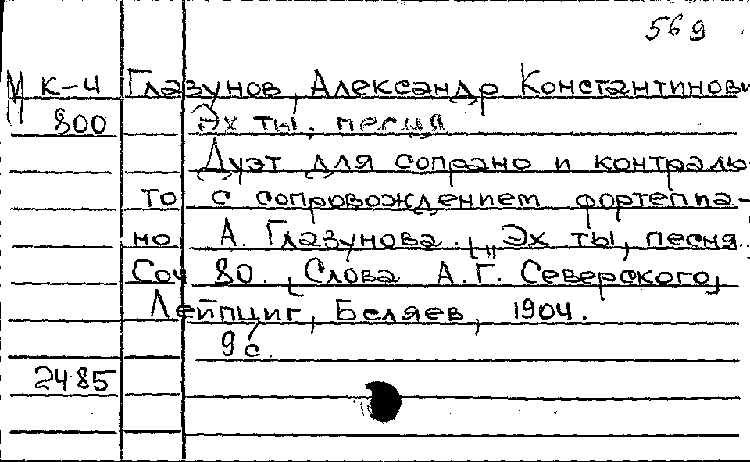 569
М К-4 Глазунов, Александр Константинови
800 Эх ты, песня
Дуэт для сопрано и контраль-
то с сопровождением фортепиа-
но А. Глазунова. „Эх ты, песня.
Соч 80. [Слова А.Г. Северского]
Лейпциг, Беляев, 1904.
9 с.
2485